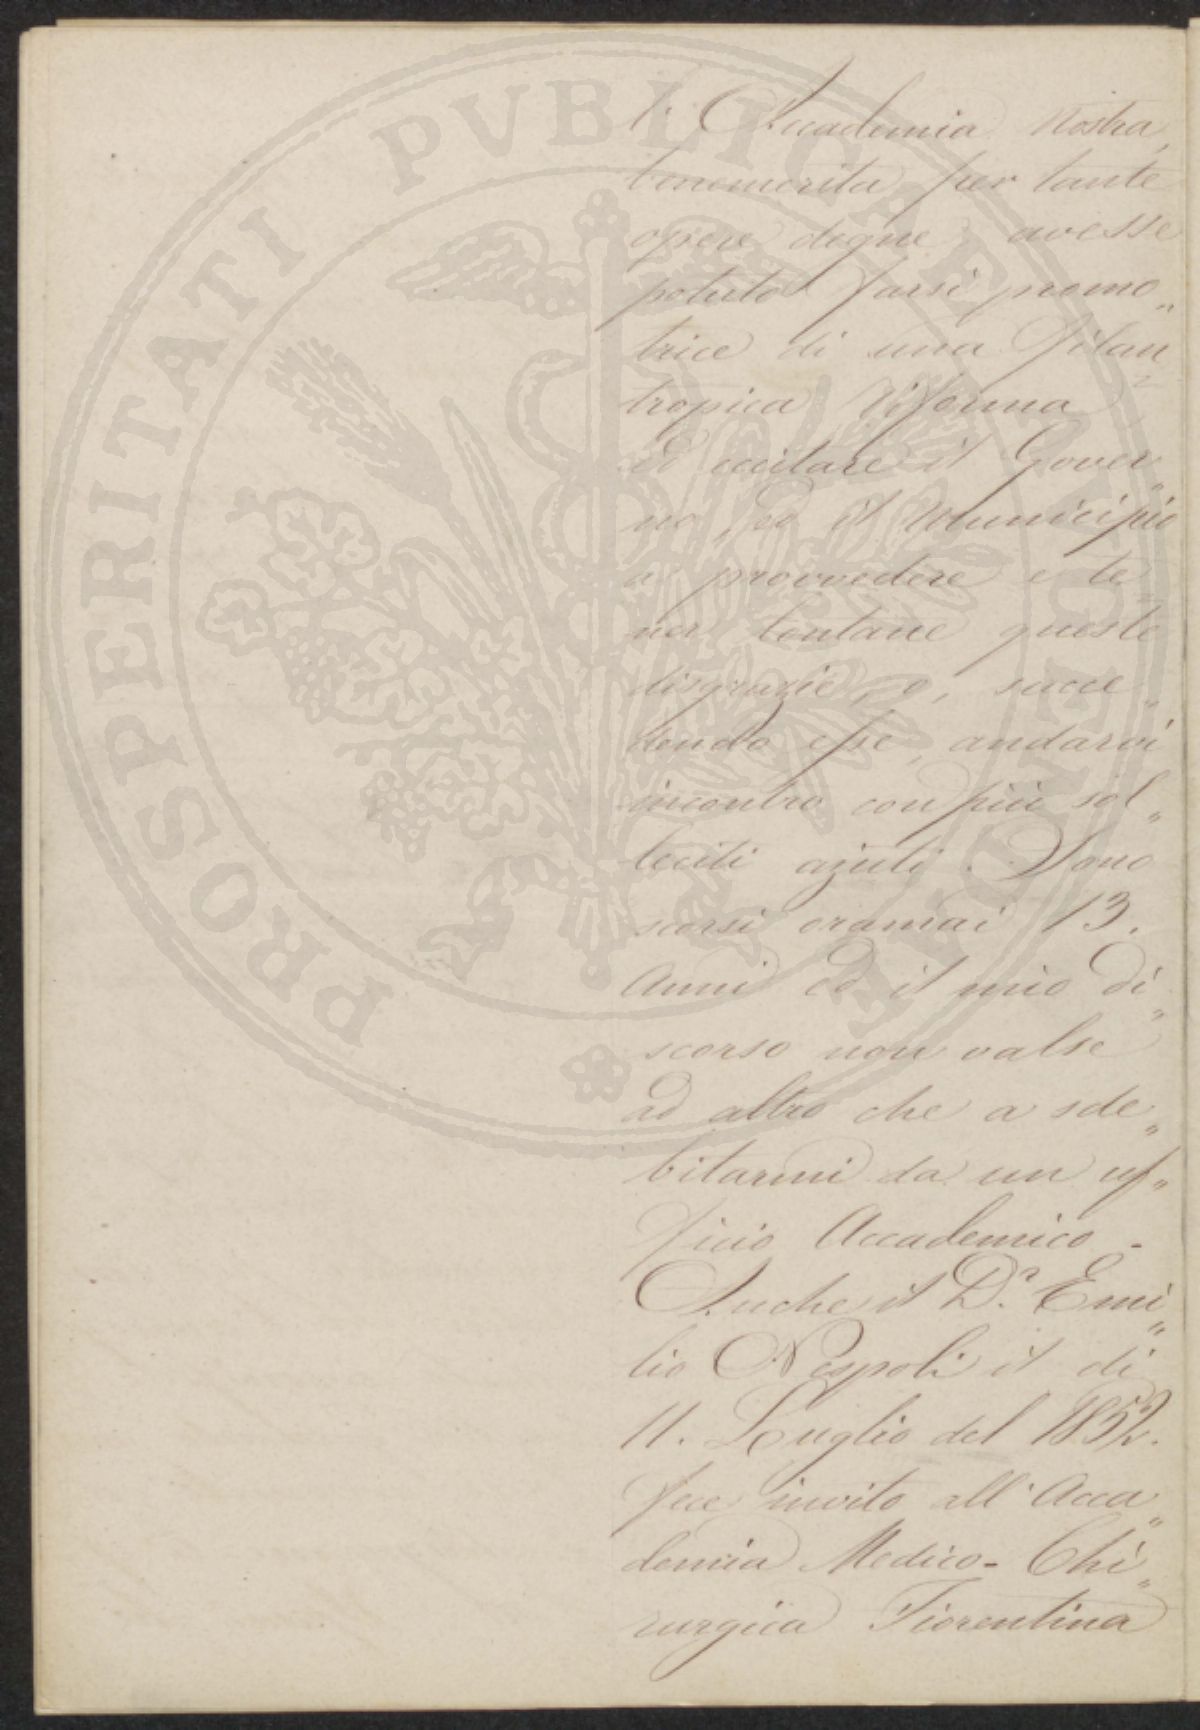 l'Accademia nostra,
benemerita per tante
opere degne, avesse
potuto farsi promo„
trice di una filan„
tropica riforma
ed eccitare il Gover„
no, ed il Municipio
a provvedere e te„
ner lontane queste
disgrazie, o, succe„
dendo esse, andarvi
incontro con più sol„
leciti ajuti. Sono
scorsi oramai 13.
Anni ed il mio di„
scorso non valse
ad altro che a sde„
bitarmi da un uf„
ficio Accademico -
Anche il D.r Emi„
lio Nespoli il di
11. Luglio del 1852.
fece invito all'Acca„
demia Medico-Chi„
rurgica Fiorentina
PROSPERITATI PVBLICAE AVGENDAE